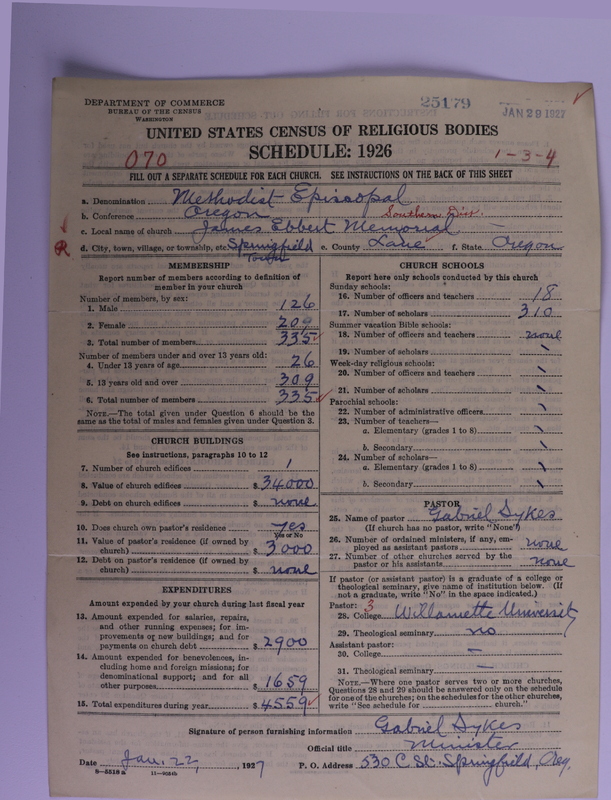 DEPARTMENT OF COMMERCE
BUREAU OF THE CENSUS
WASHINGTON
25179
JAN 29 1927
UNITED STATES CENSUS OF RELIGIOUS BODIES
SCHEDULE: 1926
070
1-3-4
FILL OUT A SEPARATE SCHEDULE FOR EACH CHURCH. SEE INSTRUCTIONS ON THE BACK OF THIS SHEET
a. Denomination Methodist Episcopal
b. Conference Oregon Southern Div.
c. Local name of church James Ebbert Memorial
R
d. City, town, village, or township, etc. Springfield Town e. County Lane f. State Oregon
MEMBERSHIP
Report number of members according to definition of
member in your church
Number of members, by sex:
1. Male 126
2. Female 209
3. Total number of members 335
Number of members under and over 13 years old:
4. Under 13 years of age 26
5. 13 years old and over 309
6. Total number of members 335
NOTE.—The total given under Question 6 should be the
same as the total of males and females given under Question 3.
CHURCH BUILDINGS
See instructions, paragraphs 10 to 12
7. Number of church edifices 1
8. Value of church edifices $ 34000
9. Debt on church edifices $ none
10. Does church own pastor's residence yes
Yes or No
11. Value of pastor's residence (if owned by
church) $ 3000
12. Debt on pastor's residence (if owned by
church) $ none
EXPENDITURES
Amount expended by your church during last fiscal year
13. Amount expended for salaries, repairs,
and other running expenses; for im-
provements or new buildings; and for
payments on church debt $ 2900
14. Amount expended for benevolences, in-
cluding home and foreign missions; for
denominational support; and for all
other purposes $ 1659
15. Total expenditures during year $ 4559
CHURCH SCHOOLS
Report here only schools conducted by this church
Sunday schools:
16. Number of officers and teachers 18
17. Number of scholars 310
Summer vacation Bible schools:
18. Number of officers and teachers none
19. Number of scholars \
Week-day religious schools:
20. Number of officers and teachers \
21. Number of scholars \
Parochial schools:
22. Number of administrative officers \
23. Number of teachers—
a. Elementary (grades 1 to 8) \
b. Secondary \
24. Number of scholars—
a. Elementary (grades 1 to 8) \
b. Secondary \
PASTOR
25. Name of pastor Gabriel Sykes
(If church has no pastor, write "None")
26. Number of ordained ministers, if any, em-
ployed as assistant pastors none
27. Number of other churches served by the
pastor or his assistants none
If pastor (or assistant pastor) is a graduate of a college or
theological seminary, give name of institution below. (If
not a graduate, write "No" in the space indicated.)
Pastor: 3
28. College Willamette University
29. Theological seminary no
Assistant pastor:
30. College —
31. Theological seminary —
NOTE.—Where one pastor serves two or more churches,
Questions 28 and 29 should be answered only on the schedule
for one of the churches; on the schedules for the other churches,
write "See schedule for church."
Signature of person furnishing information Gabriel Sykes
Official title Minister
Date Jan. 22, 1927 P. O. Address 530 C St. Springfield, Oreg.
8—5518 a